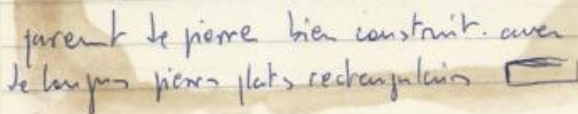 parement de pierre bien construit. avec
de longues pierres plats rectangulaires